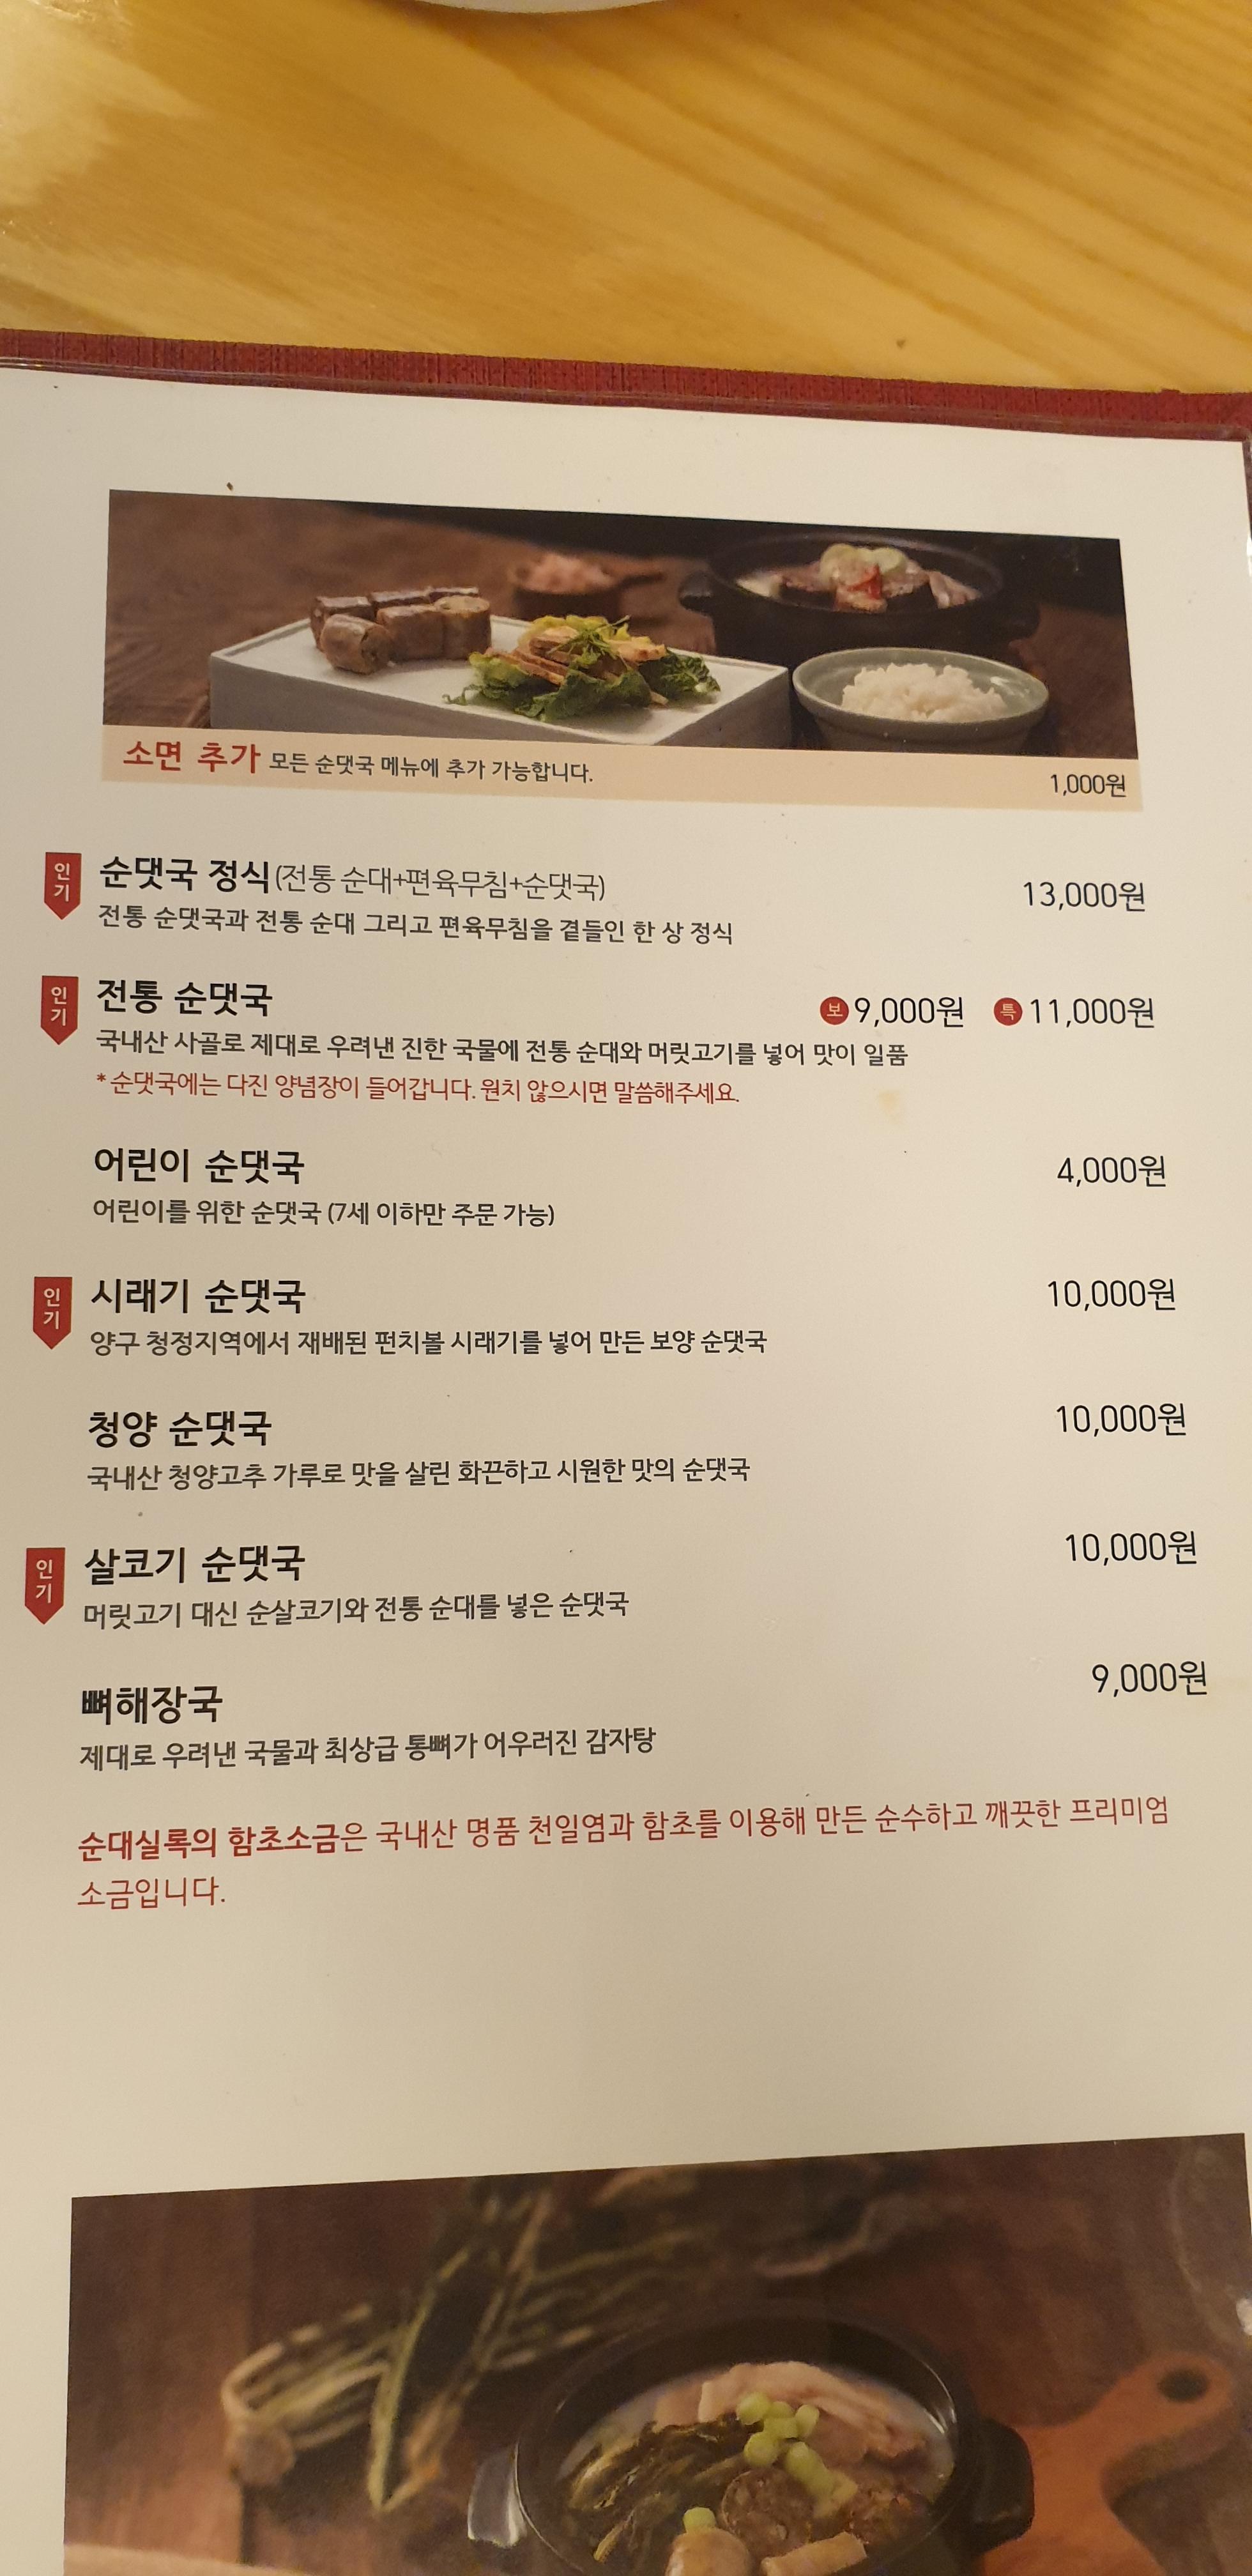 소면 추가 모든 순댓국 메뉴에 추가 가능합니다. 1,000원
인기 순댓국 정식(전통 순대+편육무침+순댓국) 13,000원
전통 순댓국과 전통 순대 그리고 편육무침을 곁들인 한 상 정식
인기 전통 순댓국 보 9,000원 특 11,000원
국내산 사골로 제대로 우려낸 진한 국물에 전통 순대와 머릿고기를 넣어 맛이 일품
* 순댓국에는 다진 양념장이 들어갑니다. 원치 않으시면 말씀해주세요.
어린이 순댓국 4,000원
어린이를 위한 순댓국 (7세 이하만 주문 가능)
인기 시래기 순댓국 10,000원
양구 청정지역에서 재배된 펀치볼 시래기를 넣어 만든 보양 순댓국
청양 순댓국 10,000원
국내산 청양고추 가루로 맛을 살린 화끈하고 시원한 맛의 순댓국
인기 살코기 순댓국 10,000원
머릿고기 대신 순살코기와 전통 순대를 넣은 순댓국
뼈해장국 9,000원
제대로 우려낸 국물과 최상급 통뼈가 어우러진 감자탕
순대실록의 함초소금은 국내산 명품 천일염과 함초를 이용해 만든 순수하고 깨끗한 프리미엄
소금입니다.